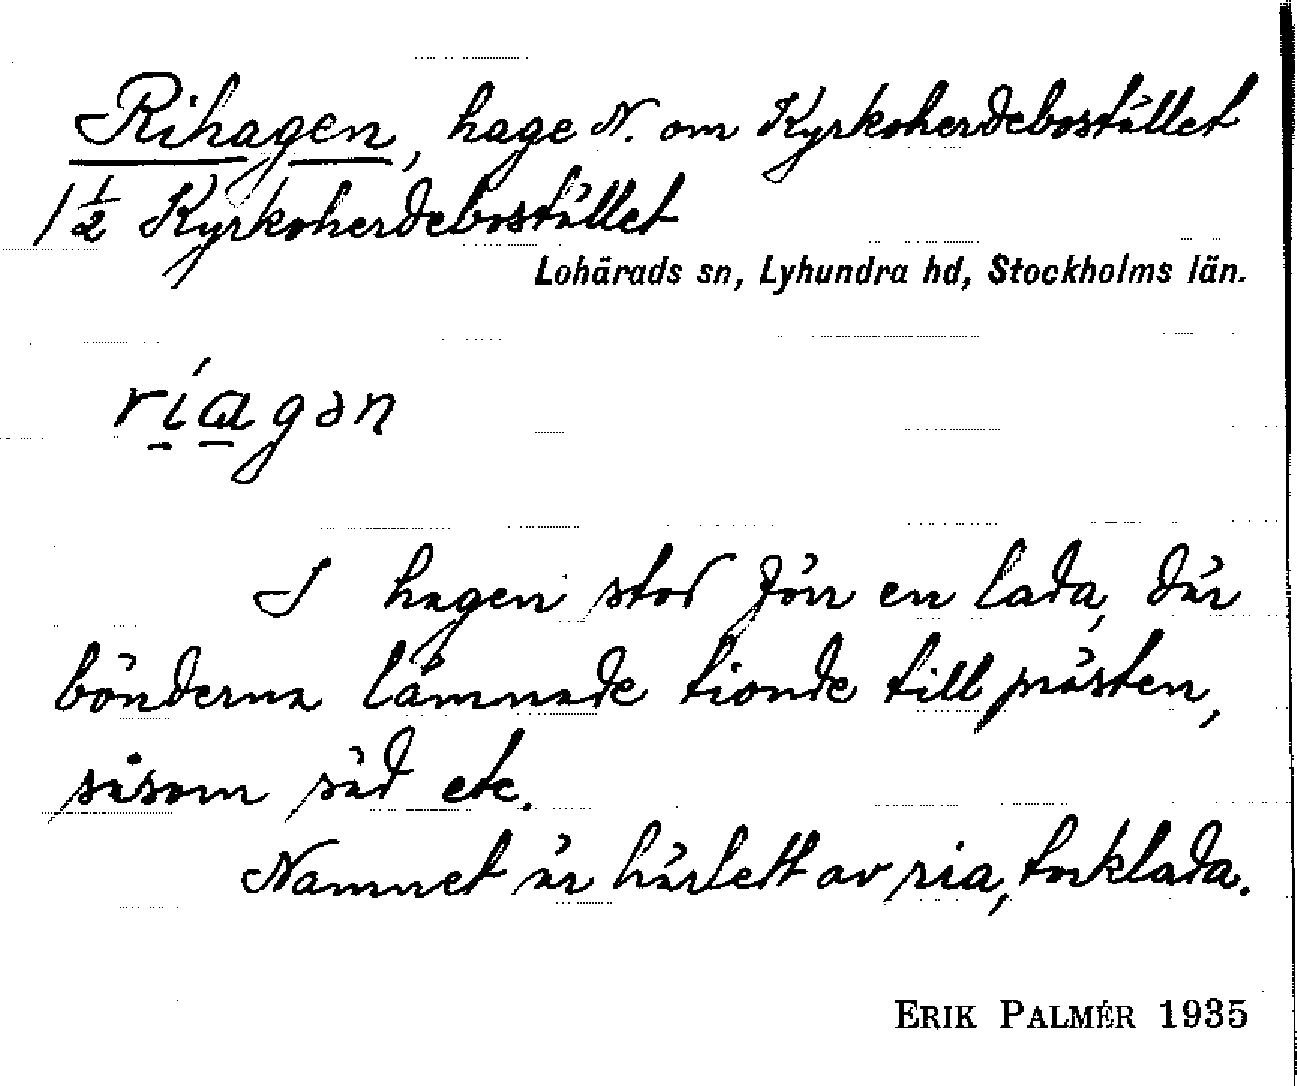 Rihagen, hage N. om Kyrkoherdebostället
1 ½ Kyrkoherdebostället
Lohärads sn, Lyhundra hd, Stockholms län.
ríagən
I hagen stod förr en lada, där
bönderna lämnade tionde till prästen,
såsom säd etc.
Namnet är härlett av ria, torklada.
ERIK PALMÉR 1935